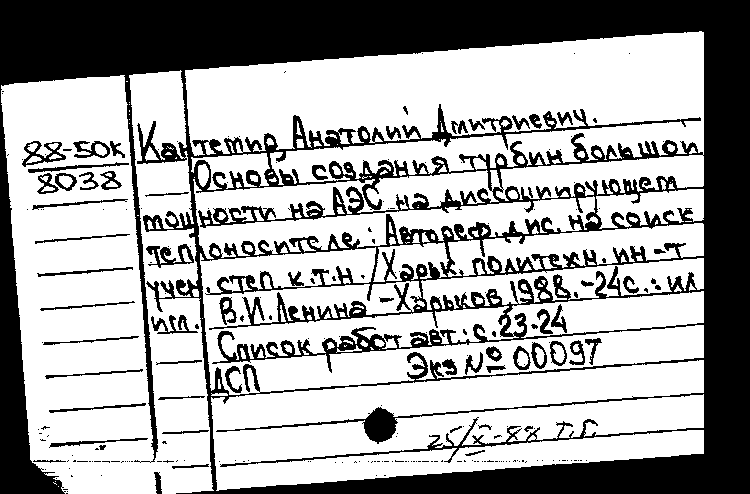 88-50к
8038
Кантемир, Анатолий Дмитриевич.
Основы создания турбин большой
мощности на АЭС на диссоциирующем
теплоносителе: Автореф. дис. на соиск
учен. степ. к.т.н. / Харьк. политехн. ин-т
им. В.И. Ленина - Харьков, 1988. - 24с.: ил
Список работ авт.: с. 23-24
ДСП Экз № 00097
25/X-88 Т.Г.